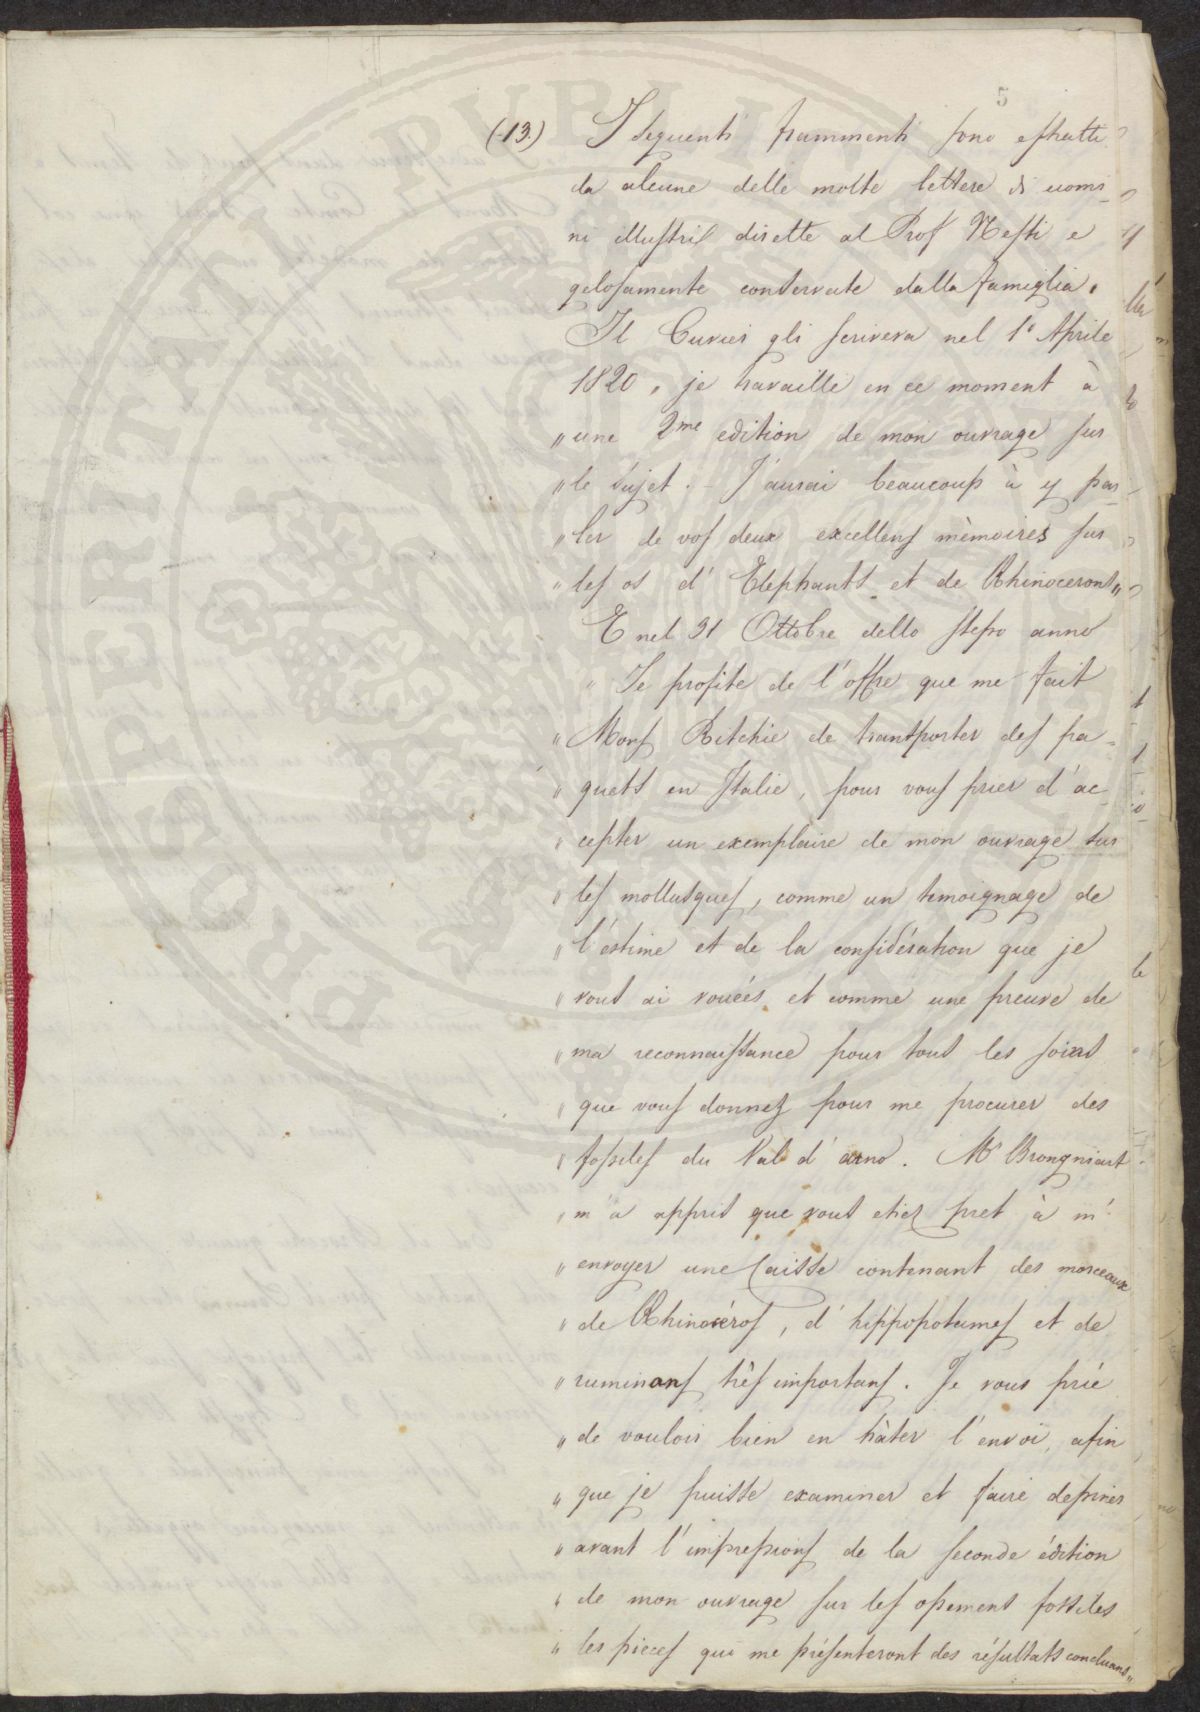 5
(13.) I seguenti frammenti sono estratti
da alcune delle molte lettere di uomi-
ni illustri dirette al Prof Nesti e
gelosamente conservate dalla famiglia.
Il Cuvier gli scriveva nel 1° Aprile
1820 „ je travaille en ce moment à
„ une 2me edition de mon ouvrage sur
„ le sujet. - J'aurai beaucoup à y par-
„ ler de vos deux excellens mèmoires sur
„ les os d'Elephants et de Rhinoceront „
E nel 31 Ottobre dello stesso anno
„ Je profite de l'offre que me fait
„ Mons Ritchie de transporter des pa-
„ quets en Italie, pour vous prier d'ac-
„ cepter un exemplaire de mon ouvrage sur
„ les mollusques, comme un temoignage de
„ l'estime et de la considération que je
„ vous ai vouées et comme une preuve de
„ ma reconnaissance pour tous les soins
„ que vous donnez pour me procurer des
„ fossiles du Val d'arno. Mr Brongniart
„ m'a apprit que vous etiez pret à m'
„ envoyer une Caisse contenant des morceaux
„ de Rhinocéros, d'hippopotames et de
„ ruminans très importans. Je vous prie
„ de vouloir bien en hàter l'envoi, afin
„ que je puisse examiner et faire dessiner
„ avant l'impressions de la seconde édition
„ de mon ouvrage sur les ossement fossiles
„ les pieces qui me présenteront des résultats concluans „
PVBLICAE
PROSPERITATI